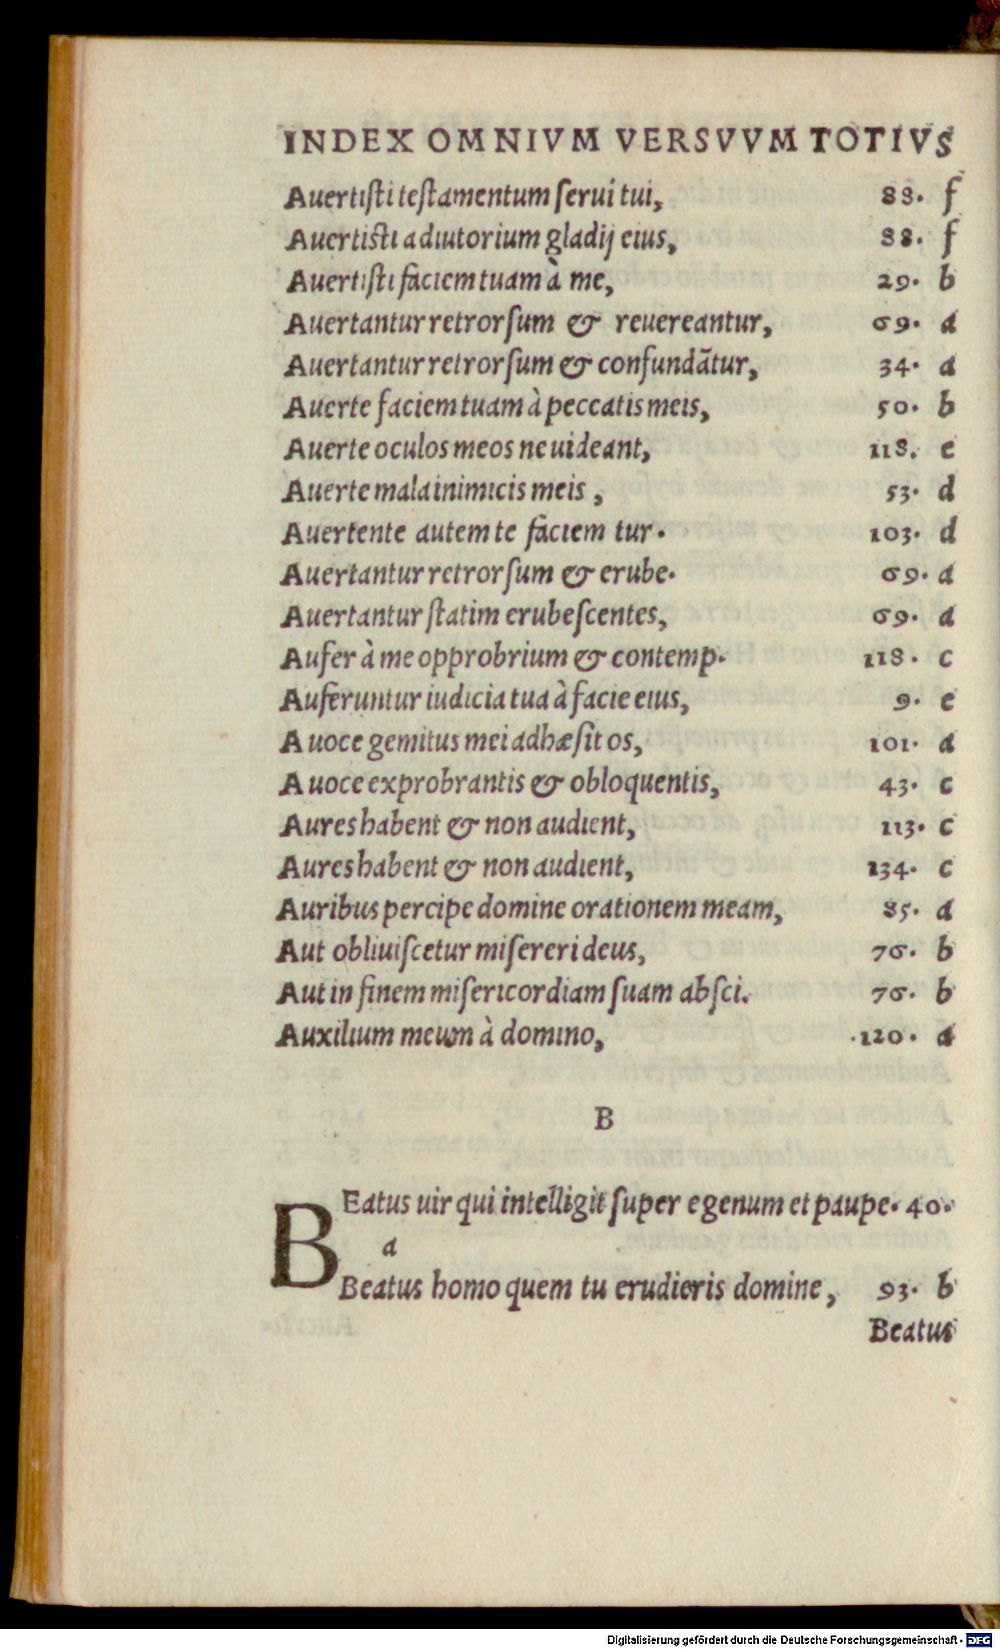 INDEX OMNIVM VERSVVM TOTIVS
Auertisti testamentum serui tui, 88. f
Auertisti adiutorium gladij eius, 88. f
Auertisti faciem tuam à me, 29. b
Auertantur retrorsum & reuereantur, 69. a
Auertantur retrorsum & confundãtur, 34. a
Auerte faciem tuam à peccatis meis, 50. b
Auerte oculos meos ne uideant, 118. e
Auerte mala inimicis meis, 53. d
Auertente autem te faciem tur. 103. d
Auertantur retrorsum & erube. 69. a
Auertantur statim erubescentes, 69. a
Aufer à me opprobrium & contemp. 118. c
Auferuntur iudicia tua à facie eius, 9. e
A uoce gemitus mei adhæsit os, 101. a
A uoce exprobrantis & obloquentis, 43. c
Aures habent & non audient, 113. c
Aures habent & non audient, 134. c
Auribus percipe domine orationem meam, 85. a
Aut obliuiscetur misereri deus, 76. b
Aut in finem misericordiam suam absci. 76. b
Auxilium meum à domino, .120. a
B
BEatus uir qui intelligit super egenum et paupe. 40.
a
Beatus homo quem tu erudieris domine, 93. b
Beatus
Digitalisierung gefördert durch die Deutsche Forschungsgemeinschaft - DFG